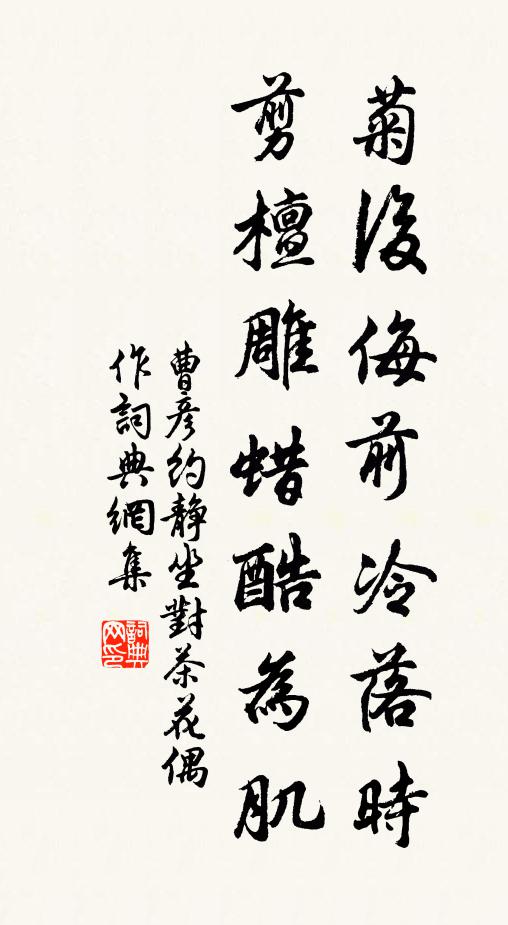 菊後侮前冷落時
剪檀雕蜡酷為肌
曹彥約靜坐對茶花偶
作詞典網集
詞典
网印